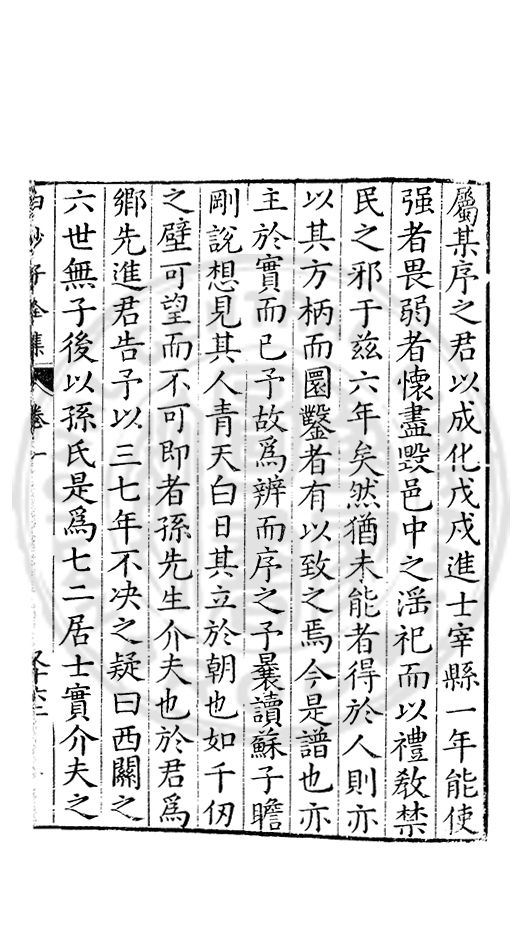 屬某序之君以成化戊戌進士宰縣一年能使
强者畏弱者懷盡毀邑中之滛祀而以禮敎禁
民之邪于玆六年矣然猶未能者得於人則亦
以其方柄而圜鑿者有以致之焉今是譜也亦
主於實而已予故爲辨而序之予曩讀蘇子瞻
剛說想見其人青天白日其立於朝也如千仞
之壁可望而不可卽者孫先生介夫也於君爲
鄉先進君告予以三七年不决之疑曰西關之
六世無子後以孫氏是爲七二居士實介夫之
白沙子全集 卷一